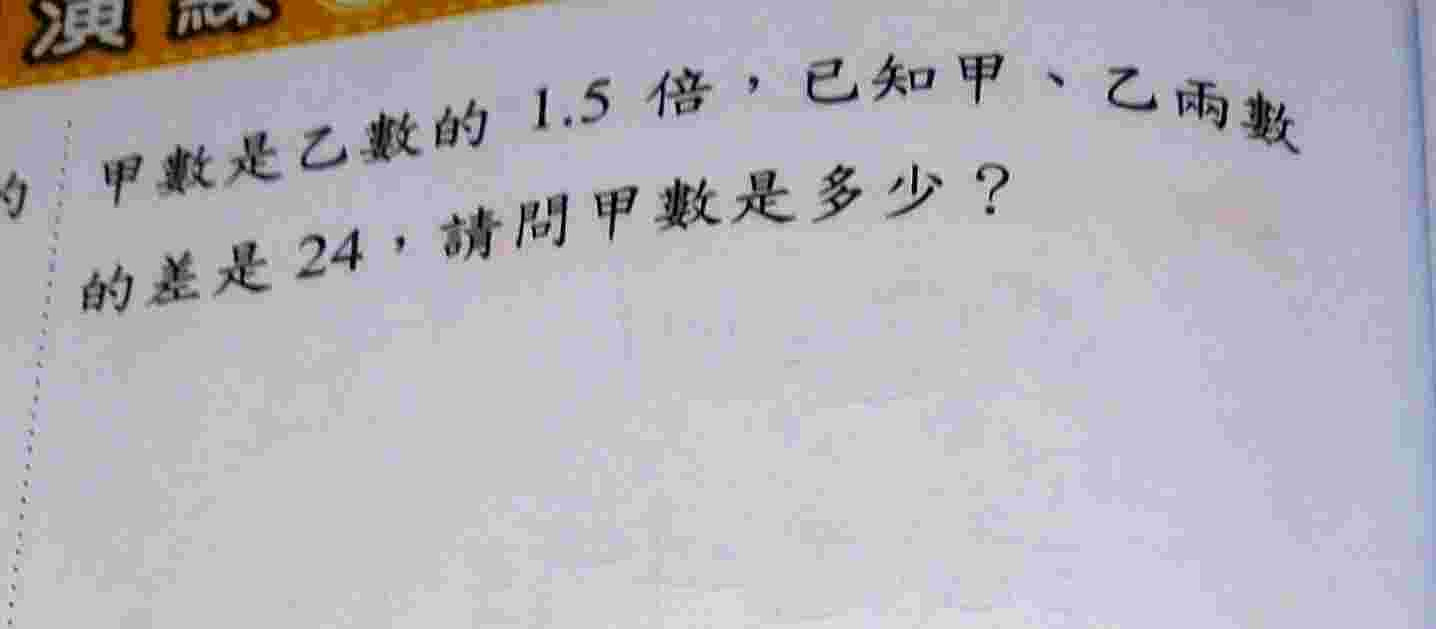 演練
甲數是乙數的 1.5 倍，已知甲、乙兩數
的差是 24，請問甲數是多少？
的